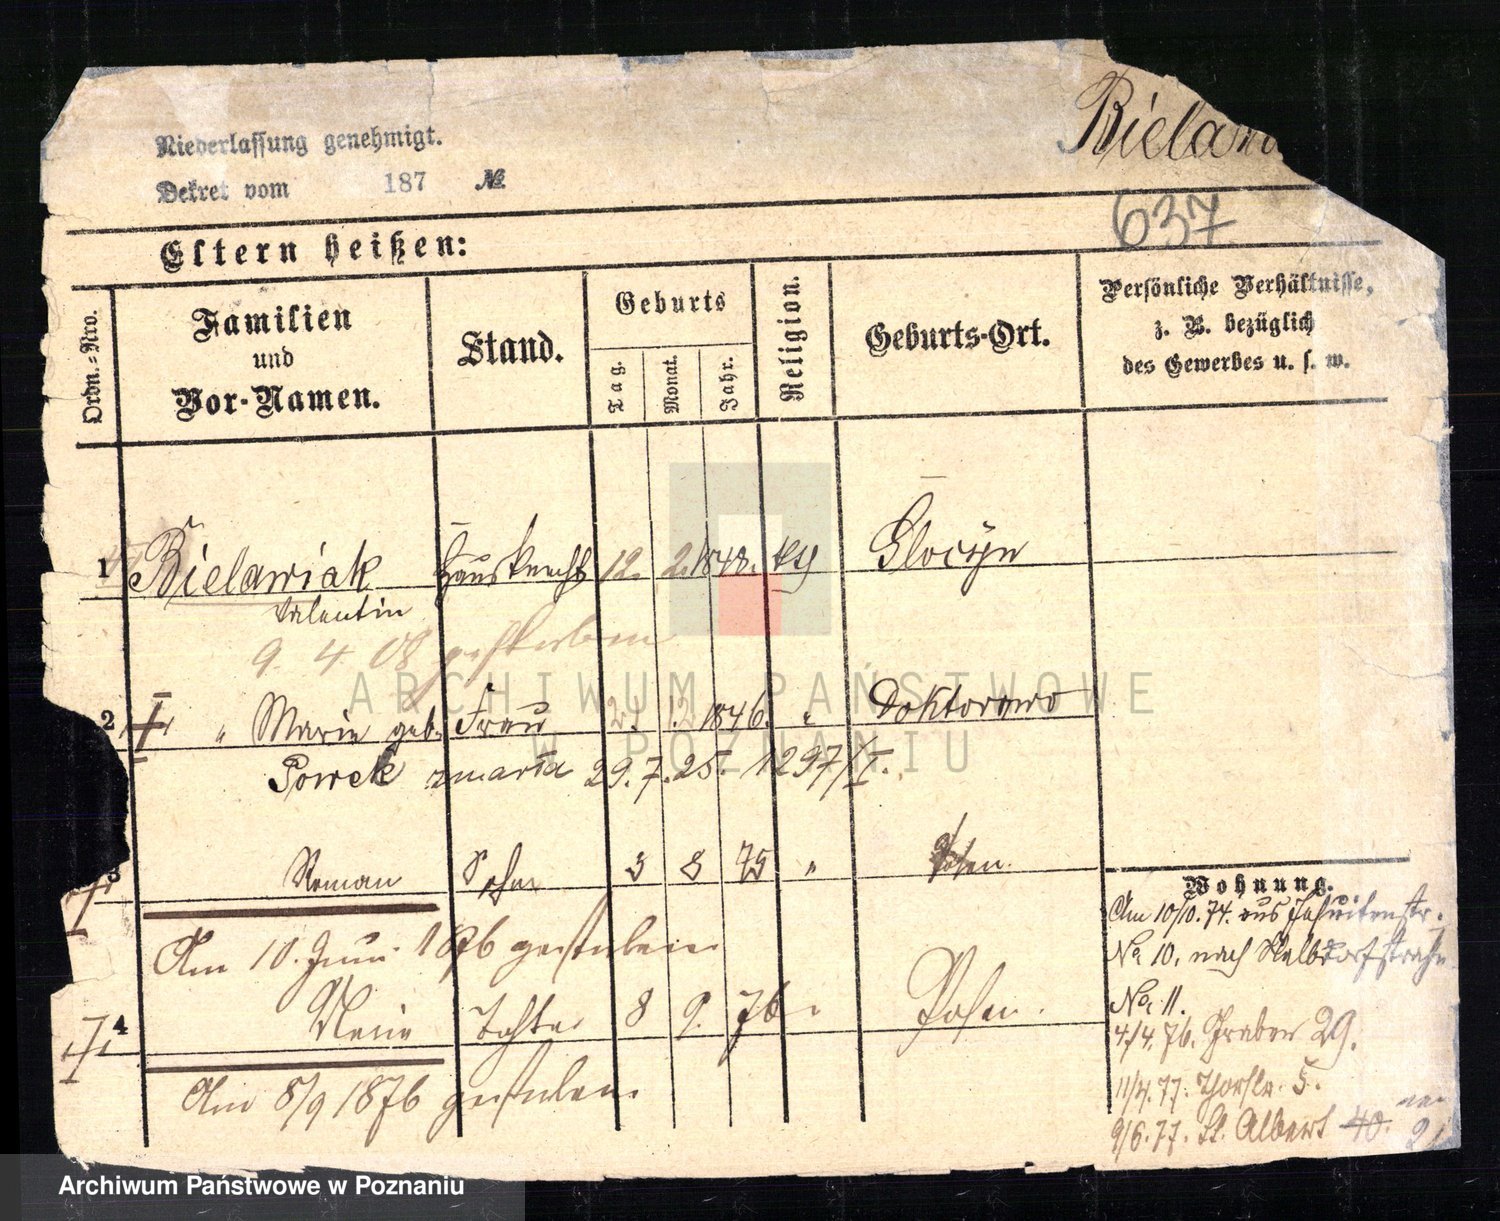 Niederlassung genehmigt.
Dekret vom 187 №
Bielaw
637
Eltern heißen:
Ordn.=Nro.
Familien und Vor-Namen.
Stand.
Geburts
Tag.
Monat.
Jahr.
Religion.
Geburts-Ort.
Persönliche Verhältnisse,
z. B. bezüglich
des Gewerbes u. s. w.
1 Bielawiak Hausknecht 12. 2. 1848. kth
Valentin
9. 4. 08 gestorben
2 " Marie geb. Frau 2. 12 1846. " Doktorowo
Powek zmarła 29. 7. 25. 1297/I.
3 Roman Sohn 3 8 75 " Posen.
Am 10. Juni 1876 gestorben
4 Marie Tochter 8 9. 76 " Posen.
Am 8/9 1876 gestorben
Wohnung.
Am 10/10. 74. aus Jesuitenstr.
No 10, nach Halbdorfstraße
No. 11.
4/4. 76. Graben 29.
11/4. 77. Thorstr. 5.
9/6. 77. St. Albert 40.
ARCHIWUM PAŃSTWOWE
W POZNANIU
Archiwum Państwowe w Poznaniu